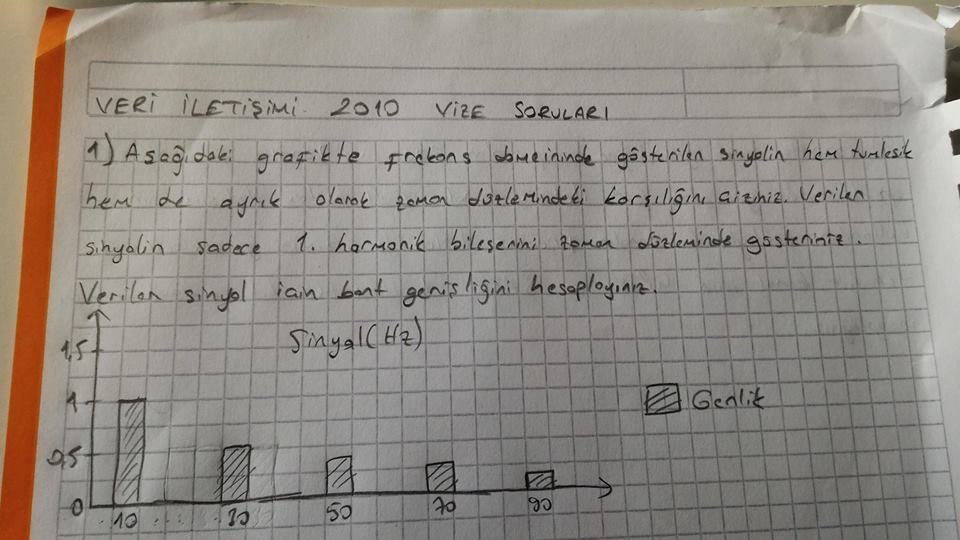 VERİ İLETİŞİMİ 2010 VİZE SORULARI
1) Aşağıdaki grafikte frekans domeininde gösterilen sinyalin hem tümleşik
hem de ayrık olarak zaman düzlemindeki karşılığını çiziniz. Verilen
sinyalin sadece 1. harmonik bileşenini zaman düzleminde gösteriniz.
Verilen sinyal için bant genişliğini hesaplayınız.
Sinyal(Hz)
1,5
1
Genlik
0,5
0
10 30 50 70 90